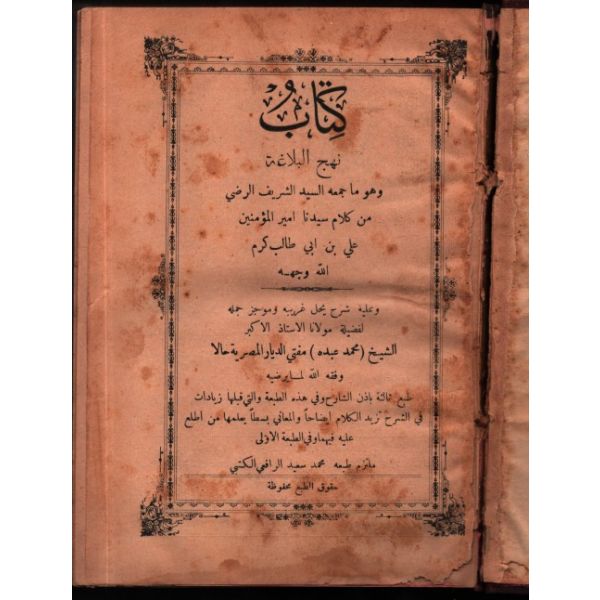 كتاب
نهج البلاغة
وهو ما جمعه السيد الشريف الرضي
من كلام سيدنا امير المؤمنين
علي بن ابي طالب كرم
الله وجهه
وعليه شرح يحل غريبه وموجز جمله
لفضيلة مولانا الاستاذ الاكبر
الشيخ (محمد عبده) مفتي الديار المصرية حالا
وفقه الله لما يرضيه
طبع ثالثة باذن الشارح وفي هذه الطبعة والتي قبلها زيادات
في الشرح تزيد الكلام ايضاحاً والمعاني بسطاً يعلمها من اطلع
عليه فيهما وفي الطبعة الاولى
ملتزم طبعه محمد سعيد الرافعي الكتبي
حقوق الطبع محفوظة